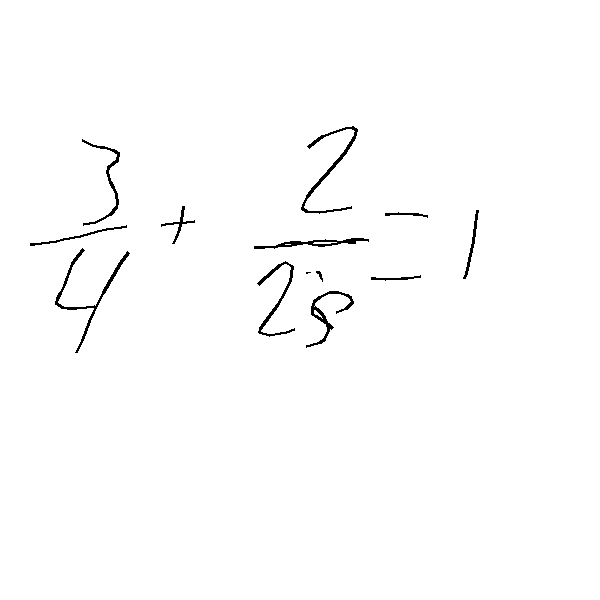 3/4 + 2/2s = 1